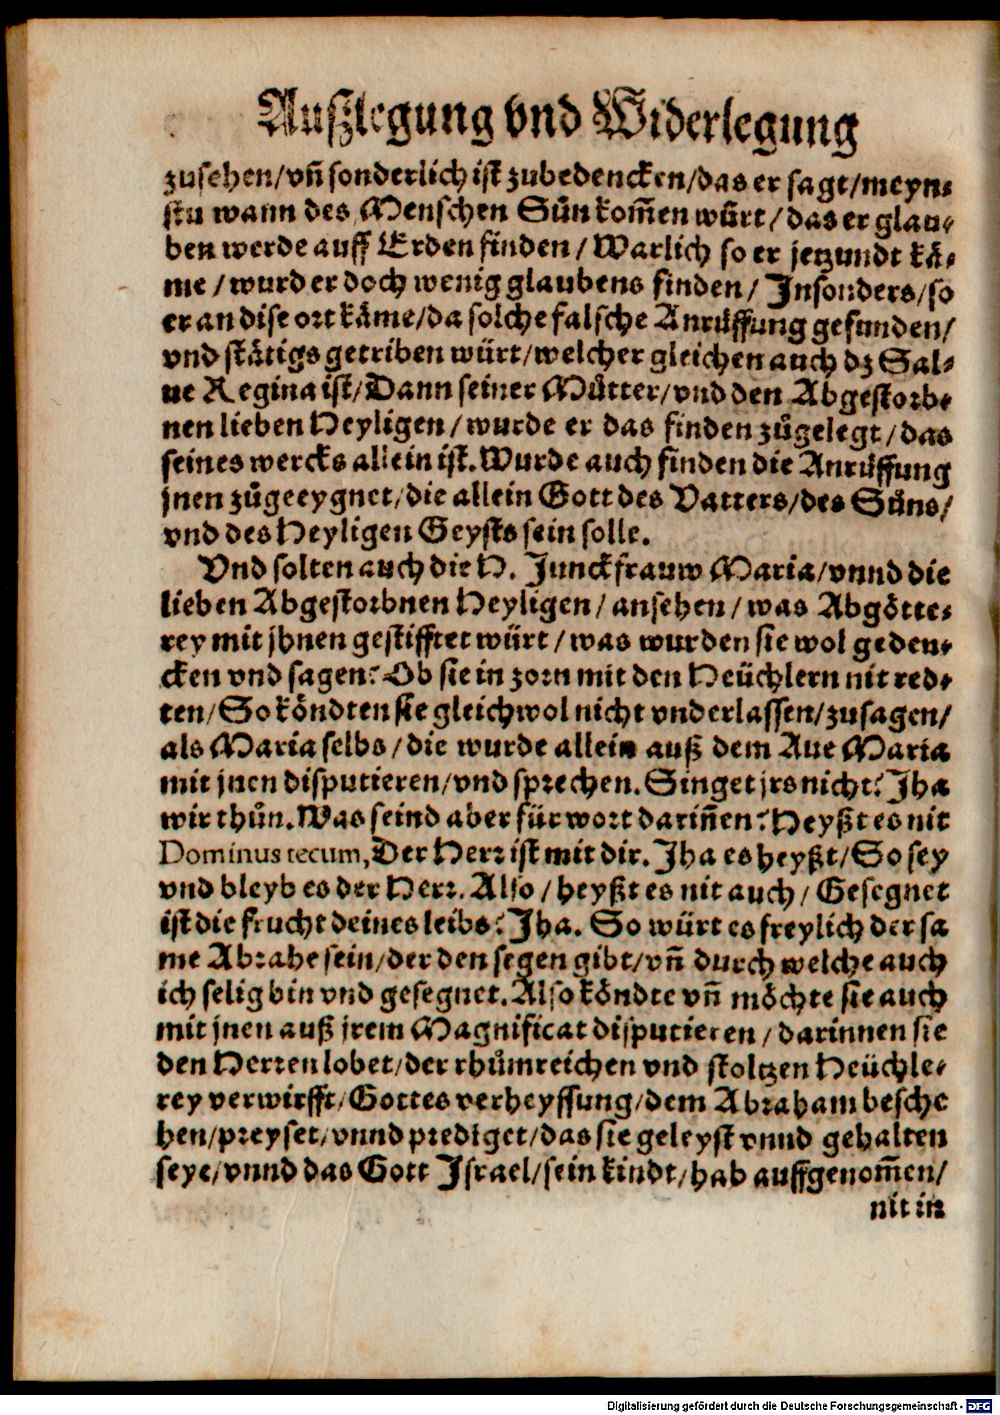 Auſzlegung vnd Widerlegung
zusehen/vñ sonderlich ist zubedencken/das er sagt/meyn⸗
stu wann des Menschen Sůn kom̃en würt/das er glau⸗
ben werde auff Erden finden/Warlich so er jetzundt kå⸗
me/wurd er doch wenig glaubens finden/Insonders/so
er an dise ort kåme/da solche falsche Anrůffung gefunden/
vnd ståtigs getriben würt/welcher gleichen auch dz Sal⸗
ue Regina ist/Dann seiner Můtter/vnd den Abgestorb⸗
nen lieben Heyligen/wurde er das finden zůgelegt/das
seines wercks allein ist. Wurde auch finden die Anrůffung
jnen zůgeeygnet/die allein Gott des Vatters/des Sůns/
vnd des Heyligen Geysts sein solle.
Vnd solten auch die H. Junckfrauw Maria/vnnd die
lieben Abgestorbnen Heyligen/ansehen/was Abgötte⸗
rey mit jhnen gestifftet würt/was wurden sie wol geden⸗
cken vnd sagen? Ob sie in zorn mit den Heüchlern nit red⸗
ten/So köndten sie gleichwol nicht vnderlassen/zusagen/
als Maria selbs/die wurde allein auß dem Aue Maria
mit jnen disputieren/vnd sprechen. Singet jrs nicht? Jha
wir thůn. Was seind aber für wort dariñen? Heyßt es nit
Dominus tecum, Der Herr ist mit dir. Jha es heyßt/So sey
vnd bleyb es der Herr. Also/heyßt es nit auch/Gesegnet
ist die frucht deines leibs? Jha. So würt es freylich der sa
me Abrahe sein/der den segen gibt/vñ durch welche auch
ich selig bin vnd gesegnet. Also köndte vñ möchte sie auch
mit jnen auß jrem Magnificat disputieren/darinnen sie
den Herren lobet/der rhůmreichen vnd stoltzen Heüchle⸗
rey verwirfft/Gottes verheyssung/dem Abraham besche
hen/preyset/vnnd prediget/das sie geleyst vnnd gehalten
seye/vnnd das Gott Israel/sein kindt/hab auffgenom̃en/
nit in
Digitalisierung gefördert durch die Deutsche Forschungsgemeinschaft - DFG